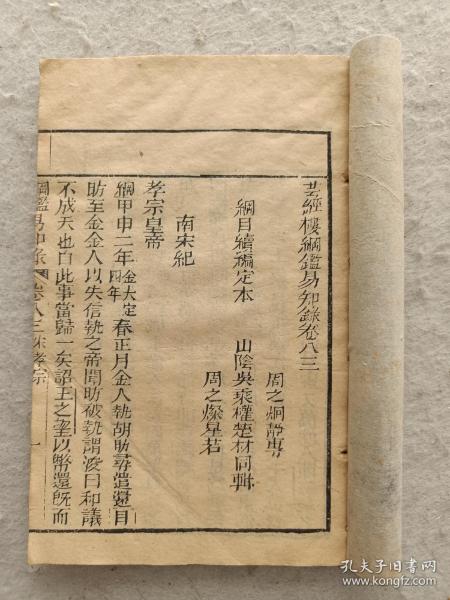 芸經樓綱鑑易知錄卷八三
周之炯靜專
綱目續編定本　山陰吳乘權楚材同輯
周之燦星若
南宋紀
孝宗皇帝
綱甲申二年金大定四年春正月金人執胡昉尋遣還目
昉至金金人以失信執之帝聞昉被執謂浚曰和議
不成天也自此事當歸一矣詔王之望以幣還旣而
綱鑑易知錄　卷八三宋孝宗　一
孔夫子旧书网
www.kongfz.com